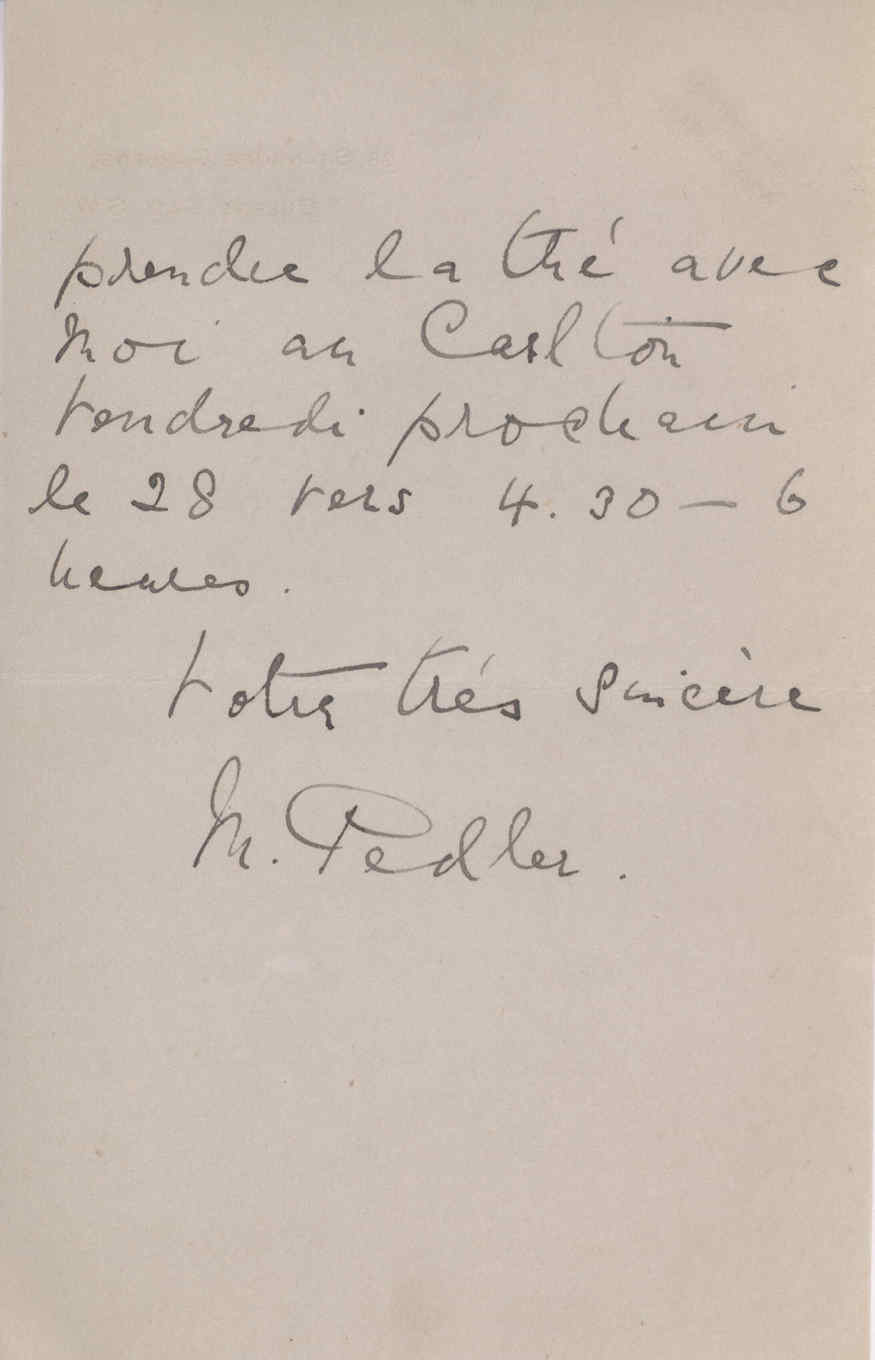 prendre la thé avec
moi au Carlton
vendredi prochain
le 28 vers 4.30 — 6
heures.
Votre trés sincère
M. Pedler.